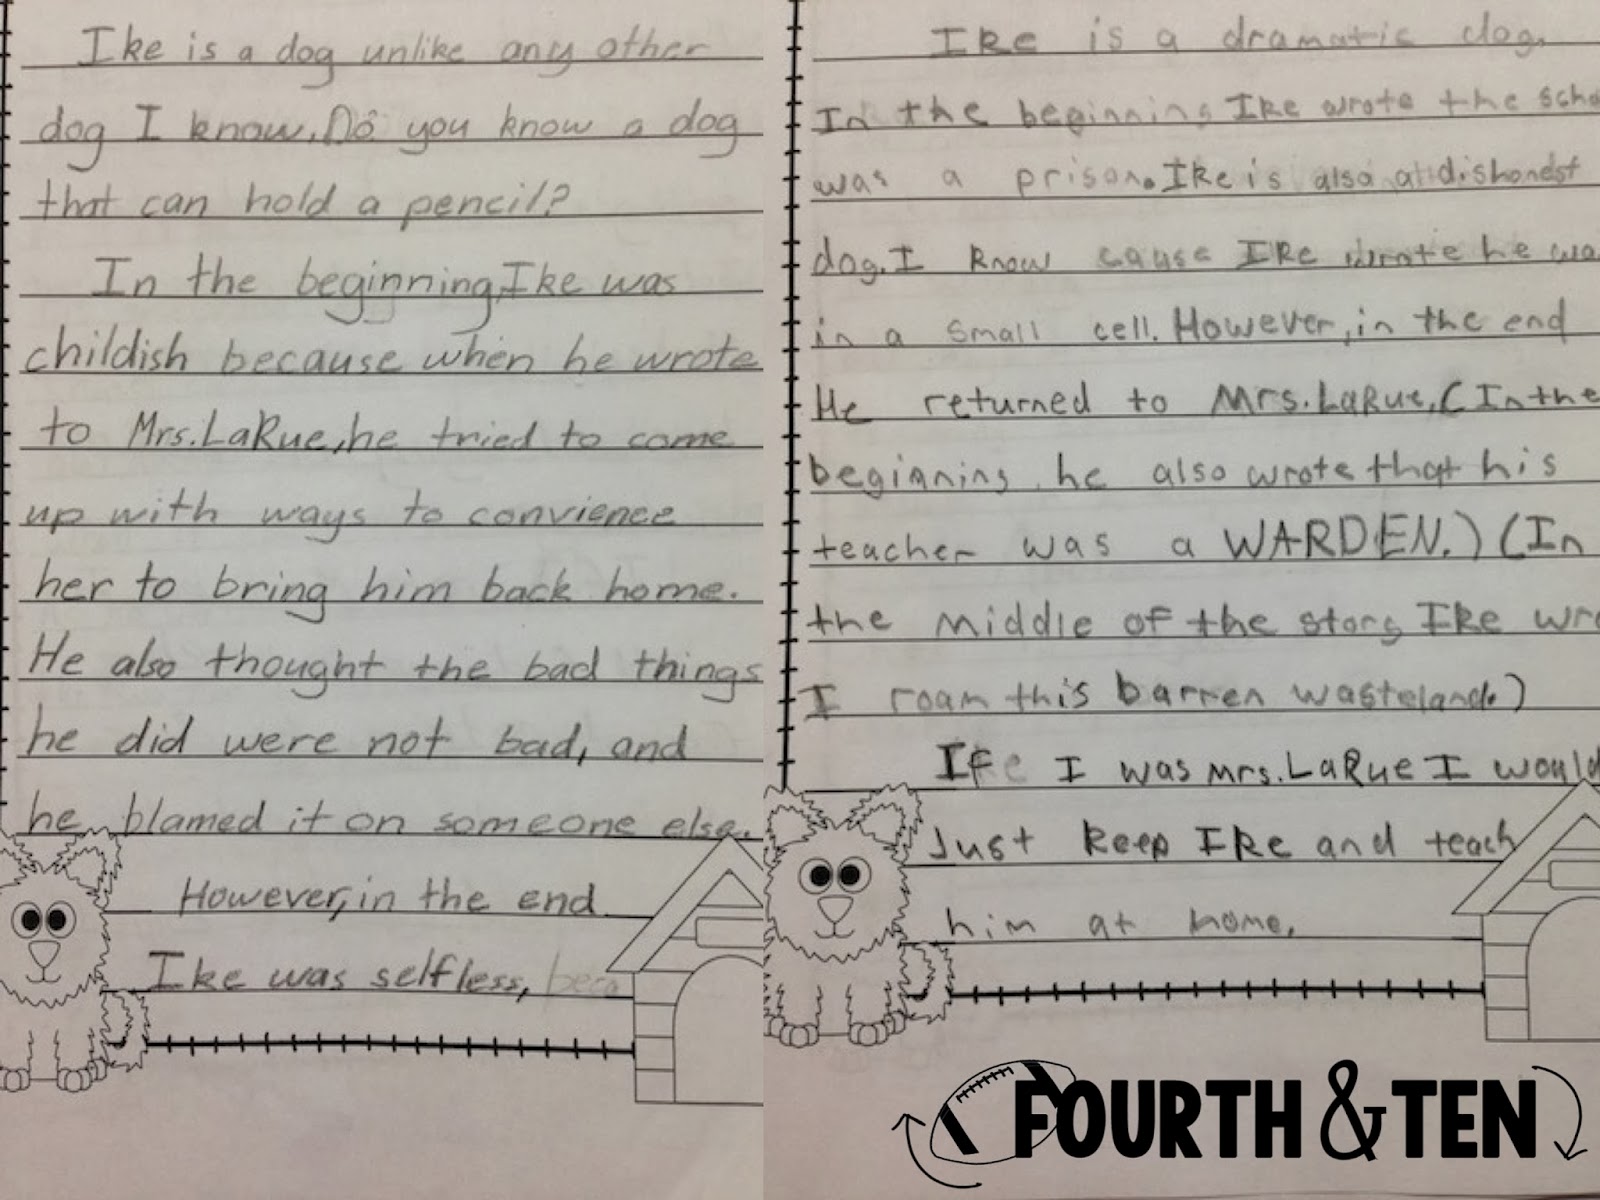 Ike is a dog unlike any other
dog I know. Do you know a dog
that can hold a pencil?
In the beginning, Ike was
childish because when he wrote
to Mrs. LaRue, he tried to come
up with ways to convience
her to bring him back home.
He also thought the bad things
he did were not bad, and
he blamed it on someone else.
However, in the end
Ike was selfless, beca
Ike is a dramatic dog.
In the beginning Ike wrote the scho
was a prison. Ike is also a dishonest
dog. I know cause Ike wrote he wa
in a small cell. However, in the end
He returned to Mrs. LaRue. (In the
beginning he also wrote that his
teacher was a WARDEN.) (In
the middle of the story Ike wro
I roam this barren wasteland.)
If I was mrs. LaRue I would
Just keep Ike and teach
him at home.
FOURTH & TEN